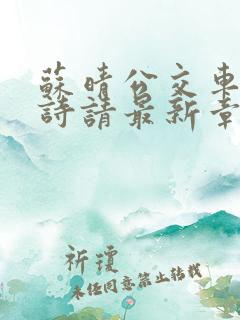 蘇晴公交車
詩請最新章
祈瓊
未經同意禁止轉載